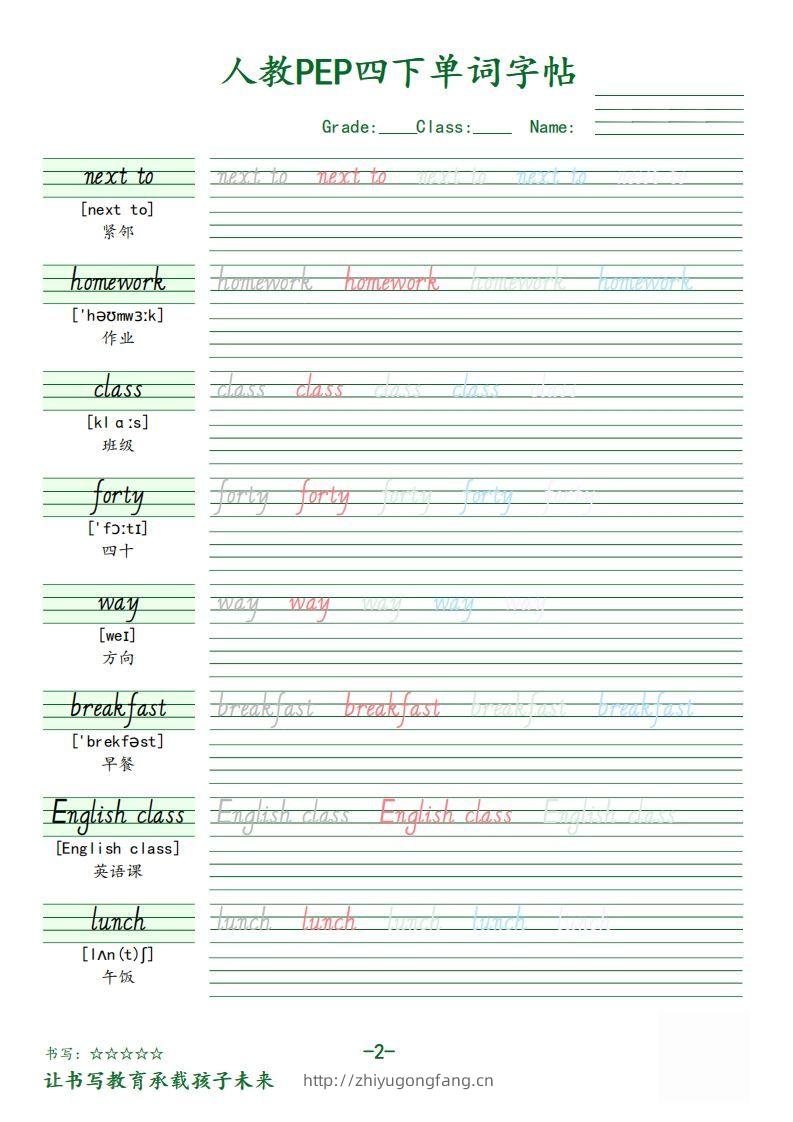 人教PEP四下单词字帖
Grade:____Class:____ Name:
next to next to next to next to next to next to
[next to]
紧邻
homework homework homework homework homework
['həʊmwɜːk]
作业
class class class class class class
[klɑːs]
班级
forty forty forty forty forty forty
['fɔːtɪ]
四十
way way way way way way
[weɪ]
方向
breakfast breakfast breakfast breakfast breakfast
['brekfəst]
早餐
English class English class English class English class
[English class]
英语课
lunch lunch lunch lunch lunch lunch
[lʌn(t)ʃ]
午饭
书写：☆☆☆☆☆
-2-
让书写教育承载孩子未来 http://zhiyugongfang.cn